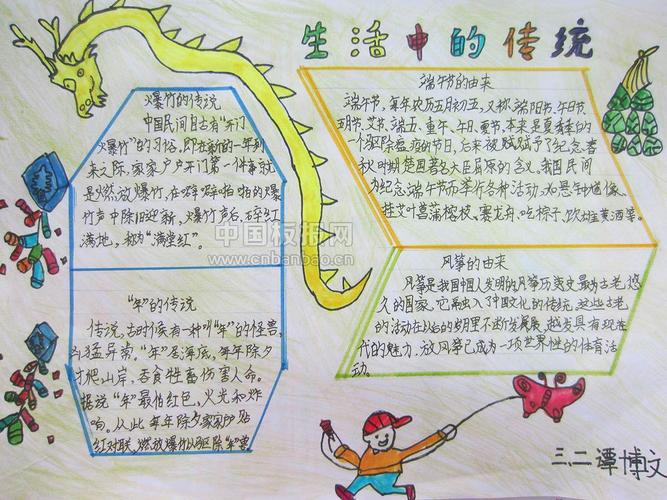 生活中的传统
爆竹的传说
中国民间自古有“开门
爆竹”的习俗，即在新的一年到
来之际，家家户户开门第一件事就
是燃放爆竹，在噼噼啪啪的爆
竹声中除旧迎新，爆竹声后，碎红
满地，称为“满堂红”。
“年”的传说
传说，古时候有一种叫“年”的怪兽，
凶猛异常。“年”居海底，每年除夕
才爬山岸，吞食牲畜伤害人命。
据说“年”最怕红色，火光和炸
响。从此每年除夕家家户户贴
红对联、燃放爆竹以驱除“年”兽
端午节的由来
端午节，每年农历五月初五，又称端阳节、午日节、
五月节、艾节、端五、重午、午日、夏节，本来是夏季的
一个驱除瘟疫的节日，后来被赋赋予了纪念春
秋时期楚国著名大臣屈原的含义。我国民间
为纪念端午节而举行各种活动，如悬钟馗像、
挂艾叶菖蒲榕枝、赛龙舟、吃粽子、饮雄黄酒等。
风筝的由来
风筝是我国人发明的，风筝历史最为古老，悠
久的国家，它融入了中国文化的传统，这些古老
的活动在以后的岁月里不断发展，越发具有现在
代的魅力，放风筝已成为一项世界性的体育活
动。
三、二 谭博文
中国板报网
www.cnbanbao.cn